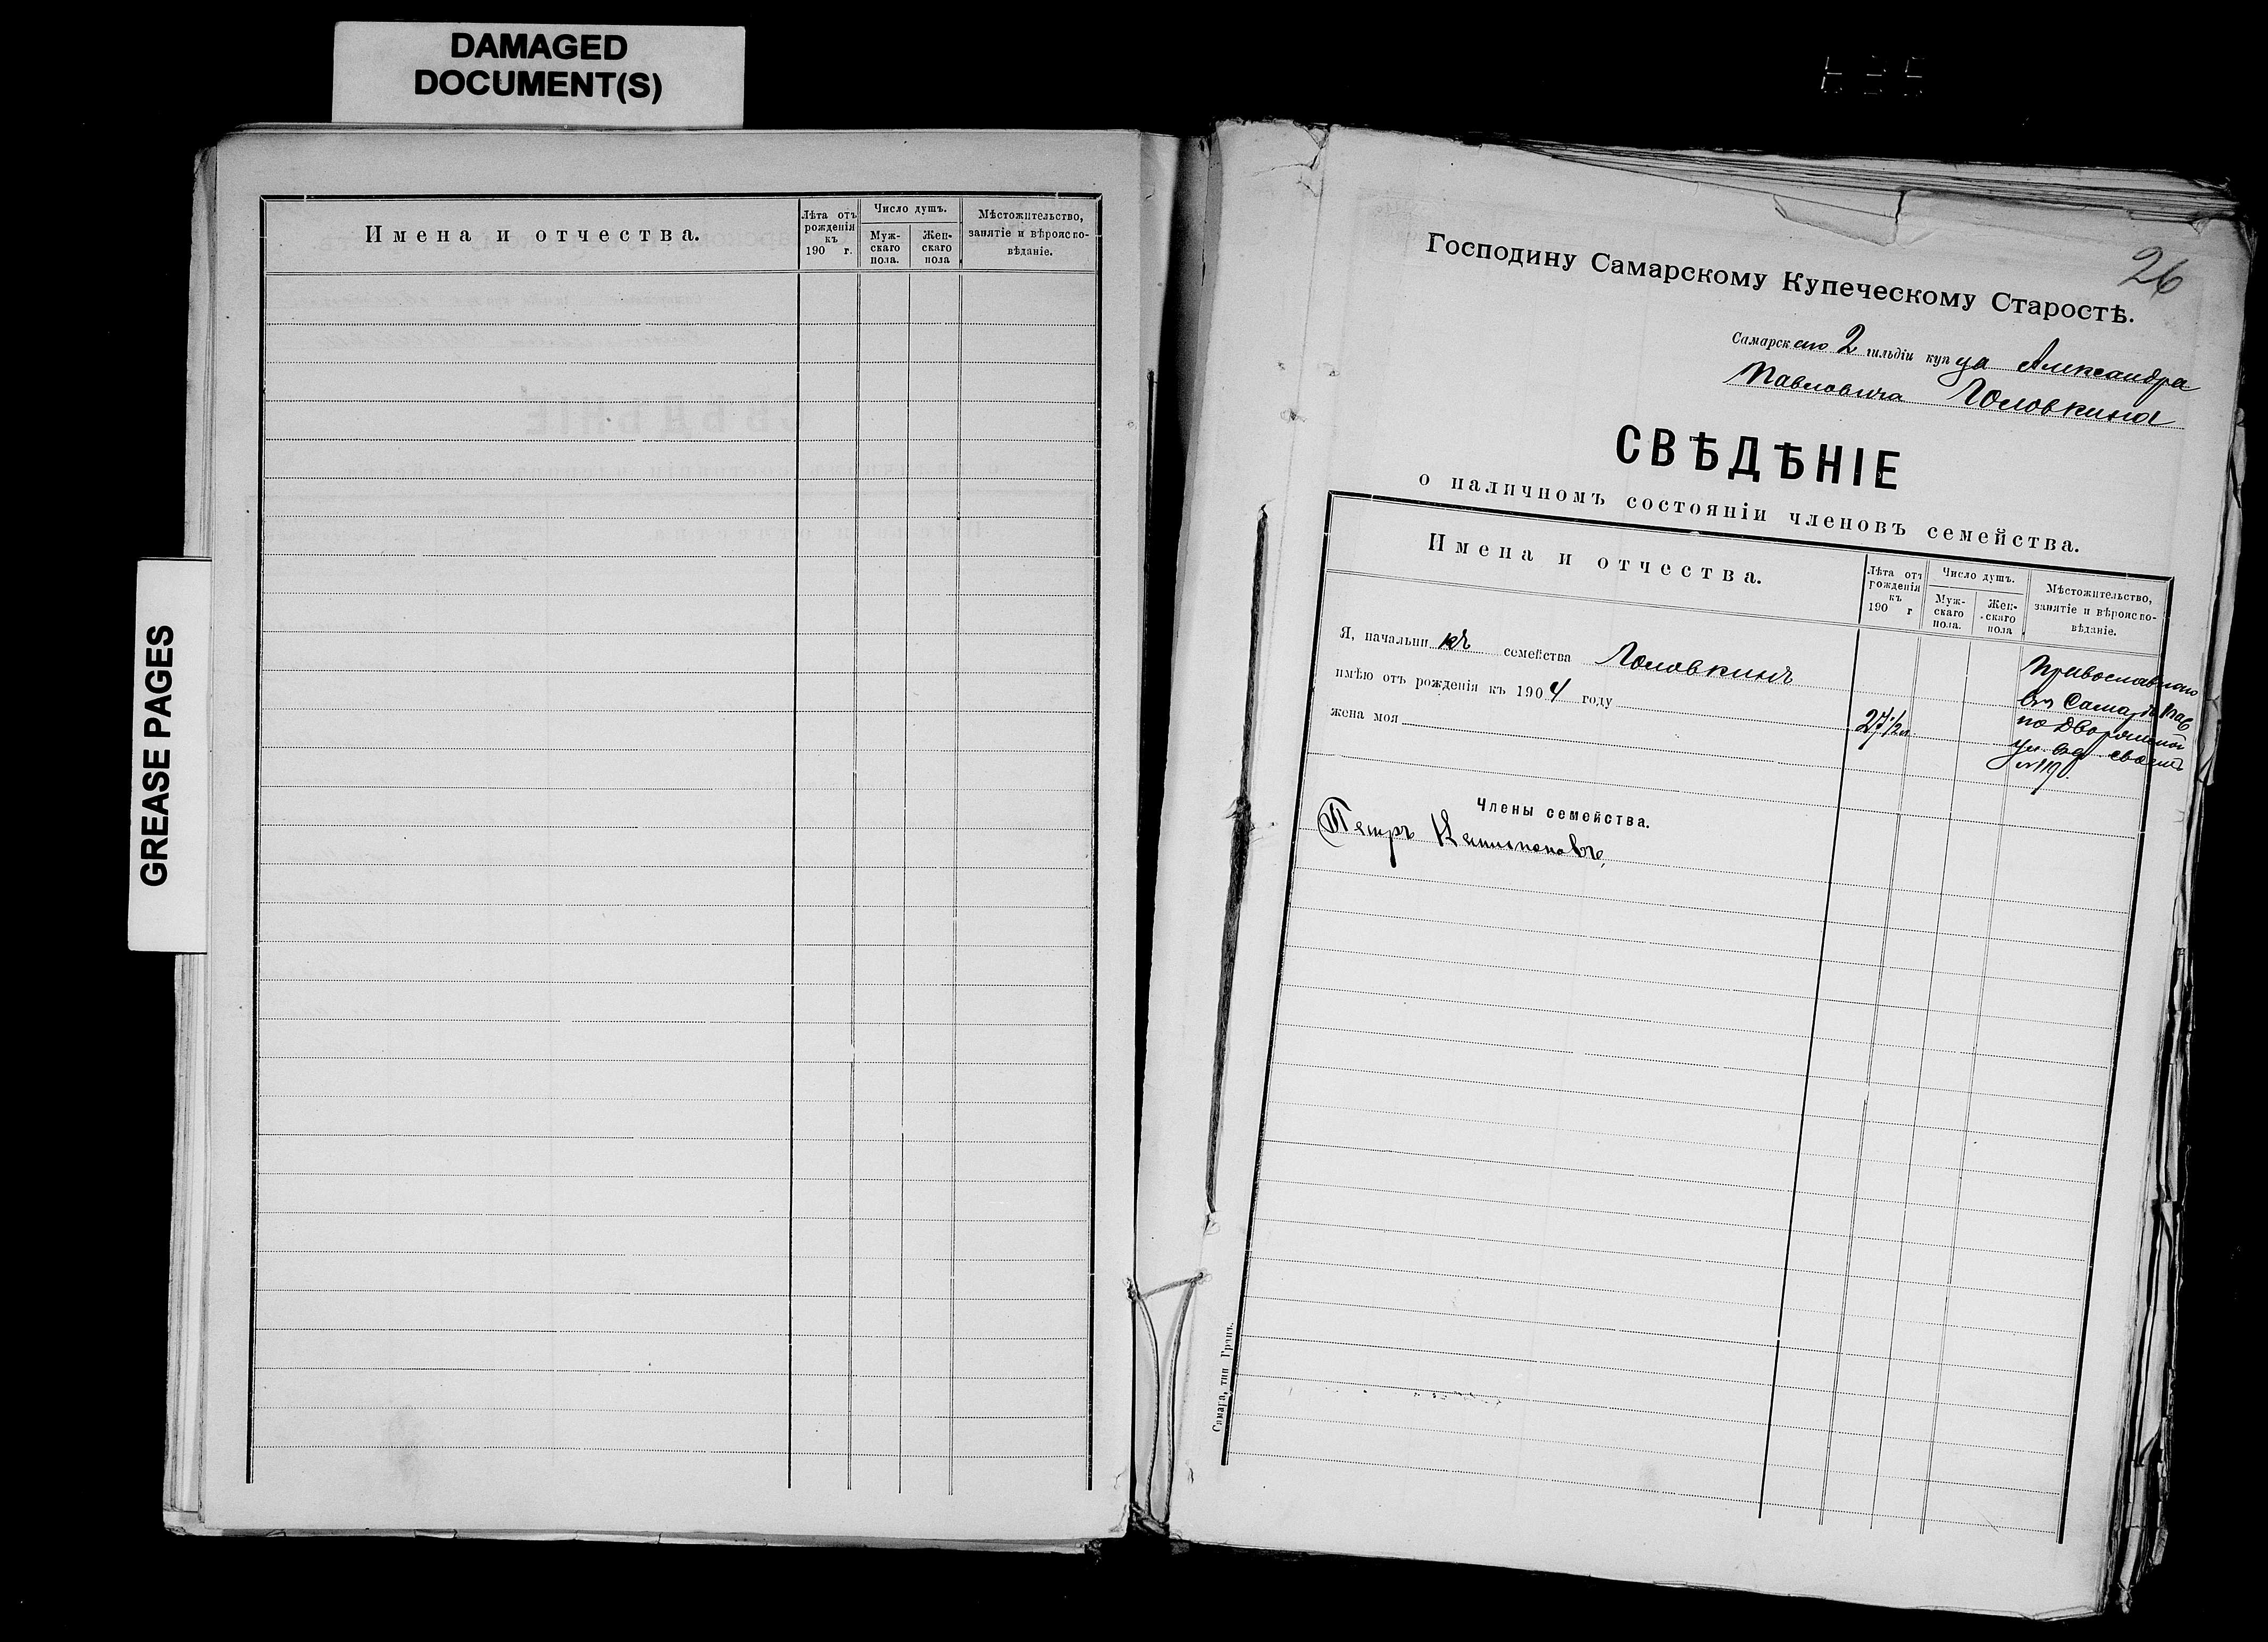 DAMAGED
DOCUMENT(S)
GREASE PAGES
Имена и отчества.
Лѣта отъ
рожденія
къ
190 г.
Число душъ.
Муж-
скаго
пола.
Жен-
скаго
пола
Мѣстожительство,
занятіе и вѣроиспо-
вѣданіе.
26
Господину Самарскому Купеческому Старостѣ.
Самарскаго 2 гильдіи купца Александра
Павловича Головкина
СВѢДѢНІЕ
о наличномъ состояніи членовъ семейства.
Имена и отчества.
Лѣта отъ
рожденія
къ
190 г
Число душъ.
Муж-
скаго
пола.
Жен-
скаго
пола
Мѣстожительство,
занятіе и вѣроиспо-
вѣданіе.
Я, начальникъ семейства Головкинъ
имѣю отъ рожденія къ 1904 году
жена моя
27 1/2 л
Православнаго
въ Самарѣ
по Дворянской
ул.
№ 119
Члены семейства.
Петръ
Самара, тип Гранъ.